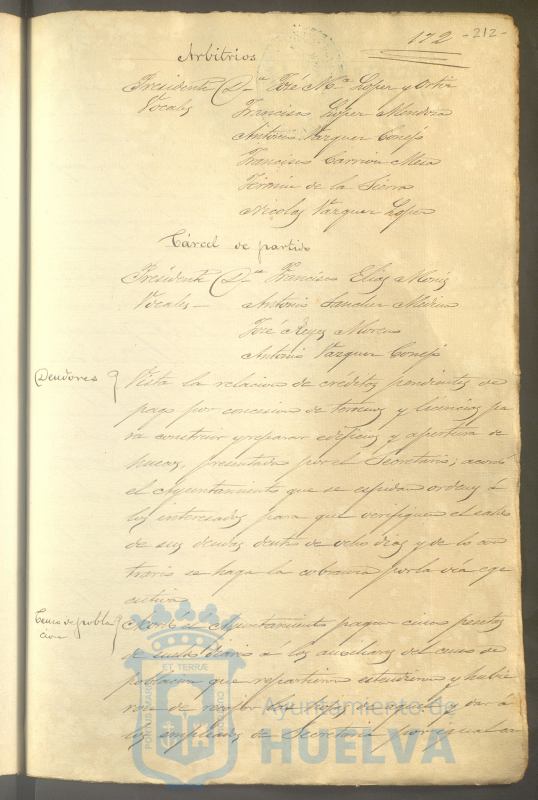 172 -212-
Arbitrios
Presidente Dn. José Ma. López y Ortiz
Vocales Francisco López Mendoza
Antonio Vázquez Conejo
Francisco Carrión Mesa
Fermín de la Sierra
Nicolás Vázquez López
Cárcel de partido
Presidente Dn. Francisco Elías
Vocales Antonio Sánchez
José Reyes Moreno
Antonio Vázquez Conejo
Deudores Vista la relacion de créditos pendientes de
pago por concesion de terrenos y licencias pa
ra construir y reparar edificios y apertura de
huecos, presentada por el Secretario; acordó
el Ayuntamiento que se expidan ordenes á
los interesados para que verifiquen el saldo
de sus deudas dentro de ocho dias y de lo con
trario se haga la cobranza por la via eje
cutiva
Censo de pobla
cion
Acordó el Ayuntamiento pagar cinco pesetas
á los auxiliares del censo de
poblacion que repartieron y hubie
ron de recojer las hojas de
los empleados de Secretaria por igual
PORTUS MARIS ET TERRÆ CUSTODIA
Ayuntamiento de
HUELVA